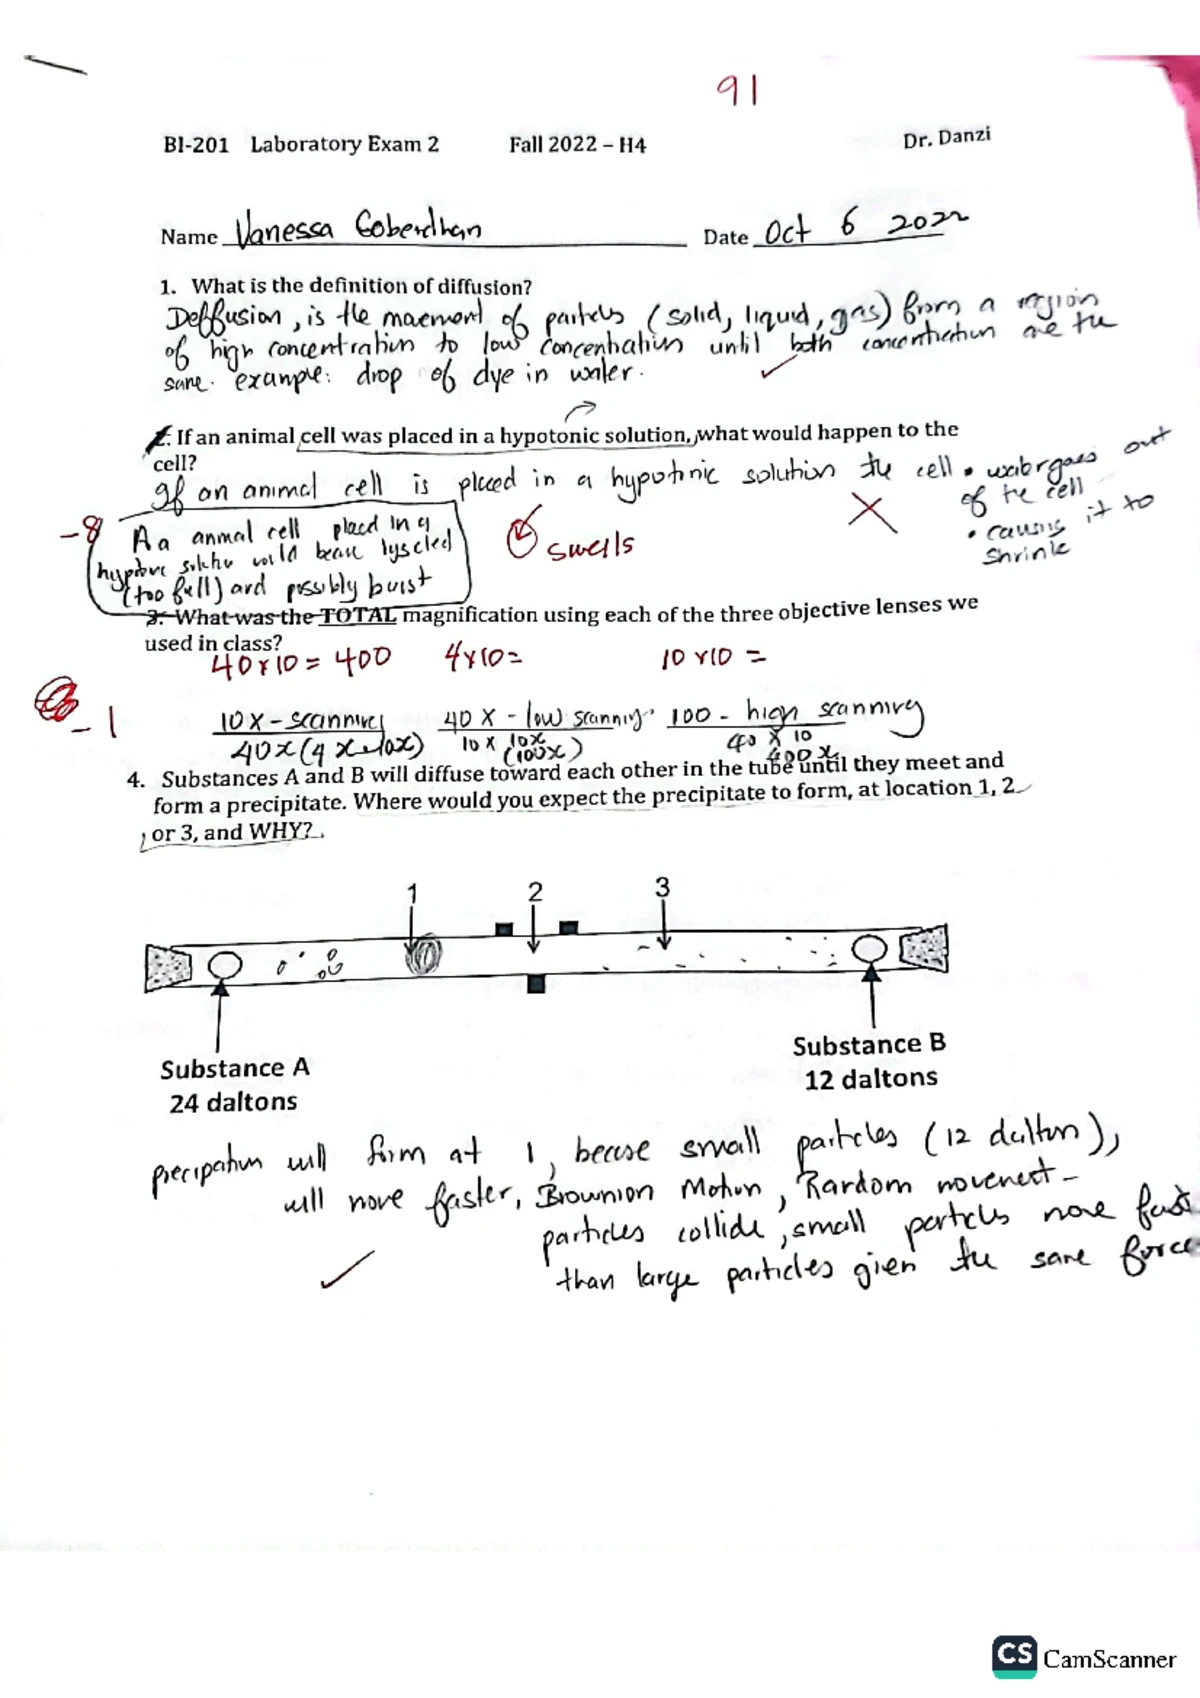 91
BI-201 Laboratory Exam 2 Fall 2022 – H4 Dr. Danzi
Name Vanessa Goberdhan Date Oct 6 2022
1. What is the definition of diffusion?
Deffusion, is the macment of particles (solid, liquid, gas) from a region
of high concentration to low concentration until both concentration are the
same. example: drop of dye in water.
2. If an animal cell was placed in a hypotonic solution, what would happen to the
cell?
If an animal cell is placed in a hypotinic solution the cell • water goes out
of the cell
• causing it to
shrink
-8
A a anmal cell placed in a
solution would lyscled
(too full) and possibly burst
swells
3. What was the TOTAL magnification using each of the three objective lenses we
used in class?
40x10 = 400 4x10= 10x10 =
-1
10x - scanning 40x - low scanning. 100 - high scanning
40x (4x10x) 10x 10x 40 x 10
(100x) 400x
4. Substances A and B will diffuse toward each other in the tube until they meet and
form a precipitate. Where would you expect the precipitate to form, at location 1, 2
, or 3, and WHY?
1 2 3
Substance A
24 daltons
Substance B
12 daltons
precipation will form at 1, becase small particles (12 daltun),
will move faster, Brownion Motion, Random movement -
particles collide, small particles move fast
than large particles given the same force
CS CamScanner